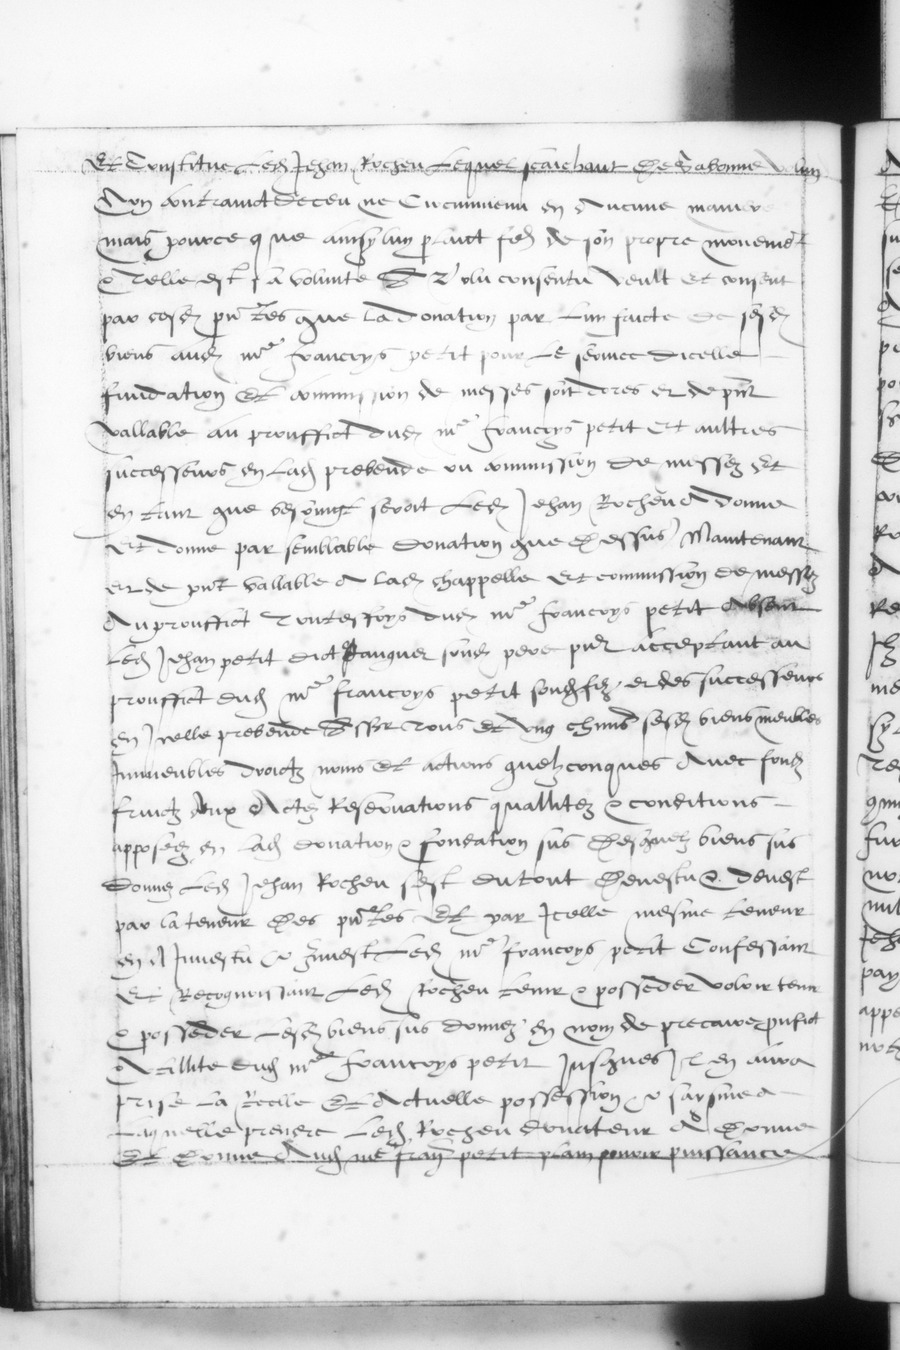 Et Constitue Led Jehan Rocheu Lequel scaichant De Sa bonne
Non contrainct deceu ne Circumvenu en Aucune maniere
mais pource que ainsy luy plaict fe de son propre mouvemet
& telle est sa volunte Et volu consentu veult et consent
par cesd pntes que la donation par luy faicte de sesd
biens aud mre francoys petit pour le service dicelle
fundation Et commission de messes soit dores et de pnt
vallable au prouffict dud mre francoys petit Et aultres
successeurs en lad prebende ou commission de messes Et
en tant que besoingt seroit Led Jehan Rocheu A donne
Et donne par semblable donation que Dessus Maintenant
et de pnt vallable A lad chappelle Et commission de messes
Au prouffict toutesfoys dud mre francoys petit Absent
Led Jehan petit dict sond pere pnt acceptant au
prouffict dud mre francoys petit sond filz et des successeurs
en Icelle prebende Et sur tous Et ung chuns sesd biens meubles
Immeubles droictz noms Et actions quelzconques Avec fondz
fruictz Actes Reservations quallitez & conditions
apposees en lad donation & fondation sus Desquelz biens sus
donnez Led Jehan Rocheu sest du tout Devestu & Devest
par la teneur Des pntes Et par Icelle mesme teneur
en A Investu & Invest Led mre francoys petit Confessant
Et Recognoissant Led Rocheu tenir & posseder voloir tenir
& posseder Lesd biens sus donnez En nom de precaire
utillite dud mre francoys petit Jusques Il en aura
prise La Reelle Et Actuelle possession & saysine
Laquelle prendre Led Rocheu donateur A Donne
Et Donne Aud mre fran petit plain povoir puissance